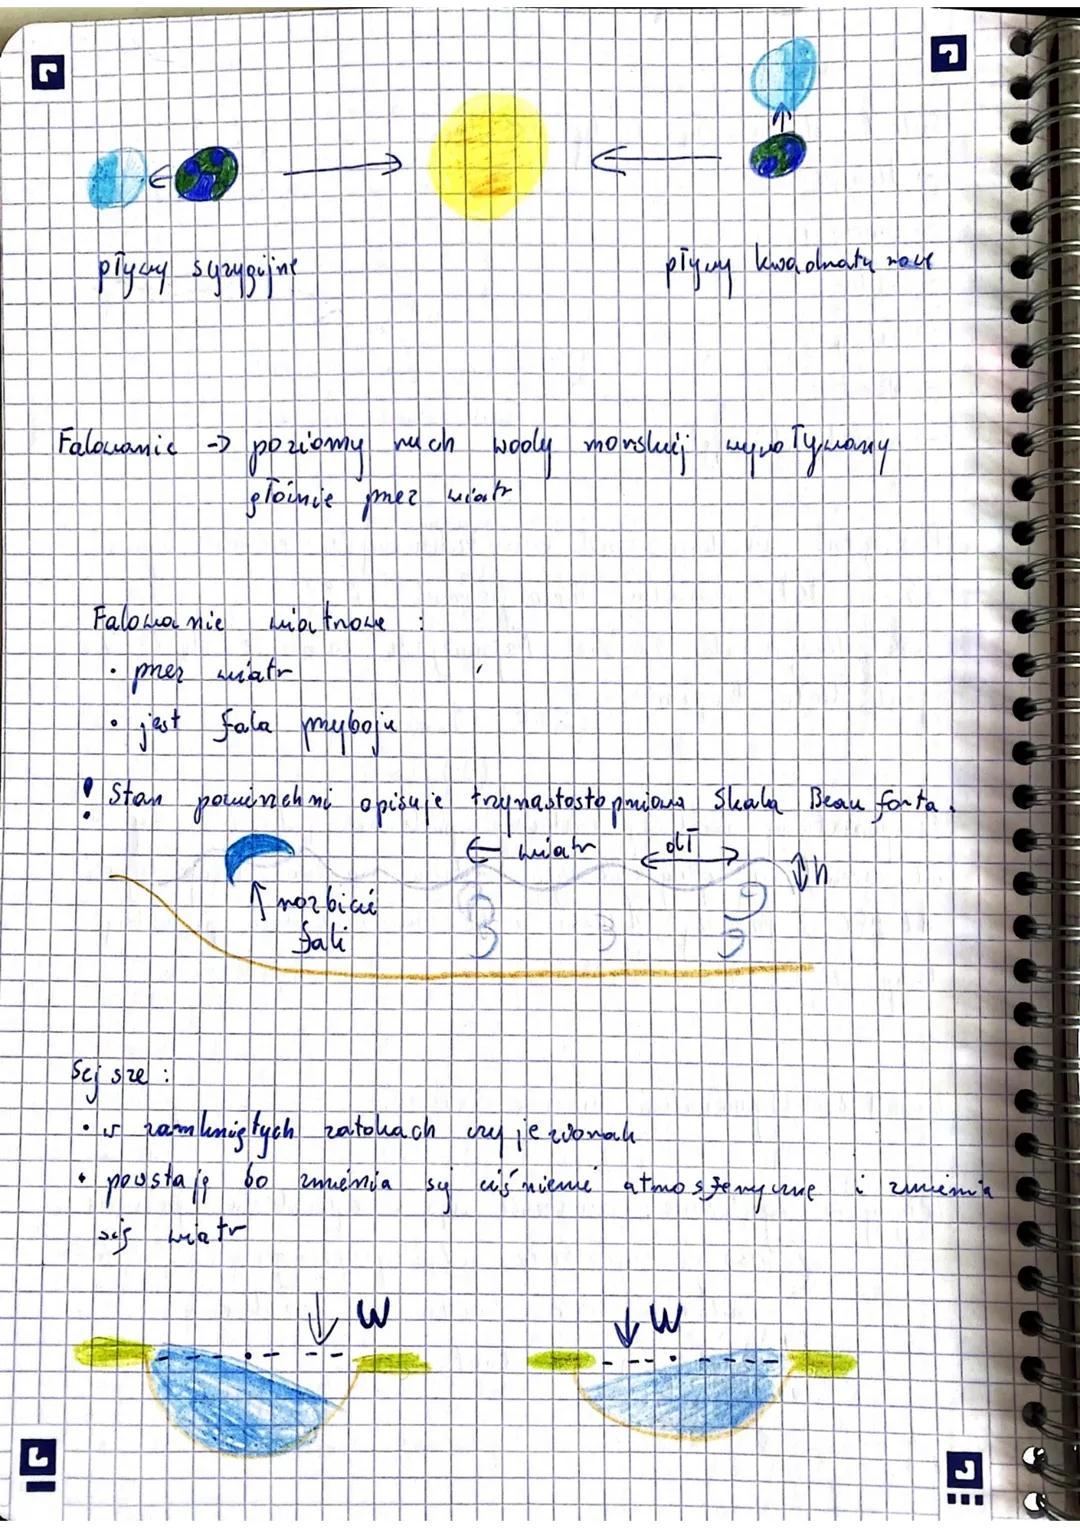 pływy syzygijne
pływy kwadraturowe
Falowanie -> poziomy ruch wody morskiej wywoływany
głównie przez wiatr
Falowanie wiatrowe :
• przez wiatr
• jest fala przyboju
! Stan powierzchni opisuje trzynastostopniowa Skala Beauforta.
← wiatr
dł
h
↑ rozbicie
fali
Sejsze :
• w zamkniętych zatokach czy jeziorach
• powstają bo zmienia się ciśnienie atmosferyczne i zmienia
się wiatr
↓ W
↓ W